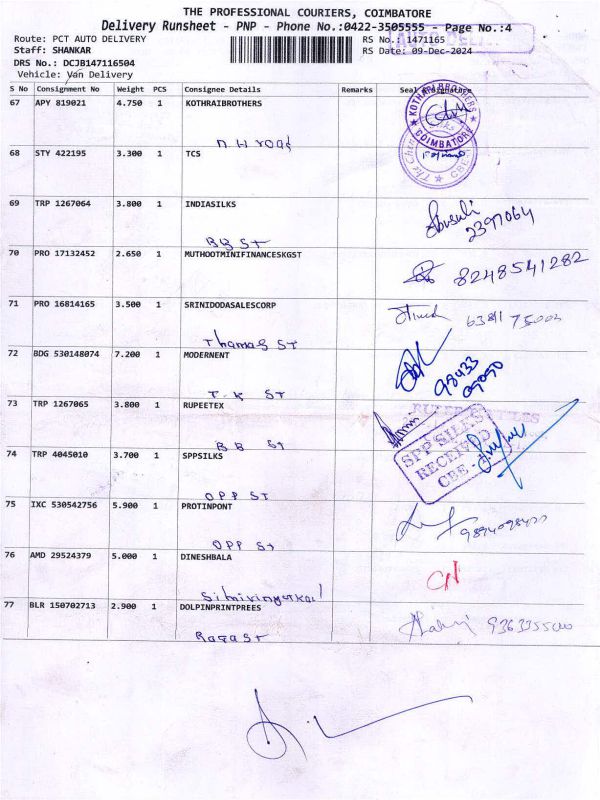 THE PROFESSIONAL COURIERS, COIMBATORE
Delivery Runsheet - PNP - Phone No.:0422-3505555 - Page No.:4
Route: PCT AUTO DELIVERY RS No.: 1471165
Staff: SHANKAR RS Date: 09-Dec-2024
DRS No.: DCJB147116504
Vehicle: Van Delivery
S No Consignment No Weight PCS Consignee Details Remarks Seal
67 APY 819021 4.750 1 KOTHRAIBROTHERS
KOTHRAI BROTHERS COIMBATORE
N H road
68 STY 422195 3.300 1 TCS
69 TRP 1267064 3.800 1 INDIASILKS
2397064
BB ST
70 PRO 17132452 2.650 1 MUTHOOTMINIFINANCESKGST
8248541282
71 PRO 16814165 3.500 1 SRINIDODASALESCORP
Thomas ST
72 BDG 530148074 7.200 1 MODERNENT
98433
T.K ST
73 TRP 1267065 3.800 1 RUPEETEX
BB ST
74 TRP 4045010 3.700 1 SPPSILKS
SPP SILKS
RECEIVED
CBE -
OPP ST
75 IXC 530542756 5.900 1 PROTINPONT
OPP ST
76 AMD 29524379 5.000 1 DINESHBALA
77 BLR 150702713 2.900 1 DOLPINPRINTPREES
Raga ST